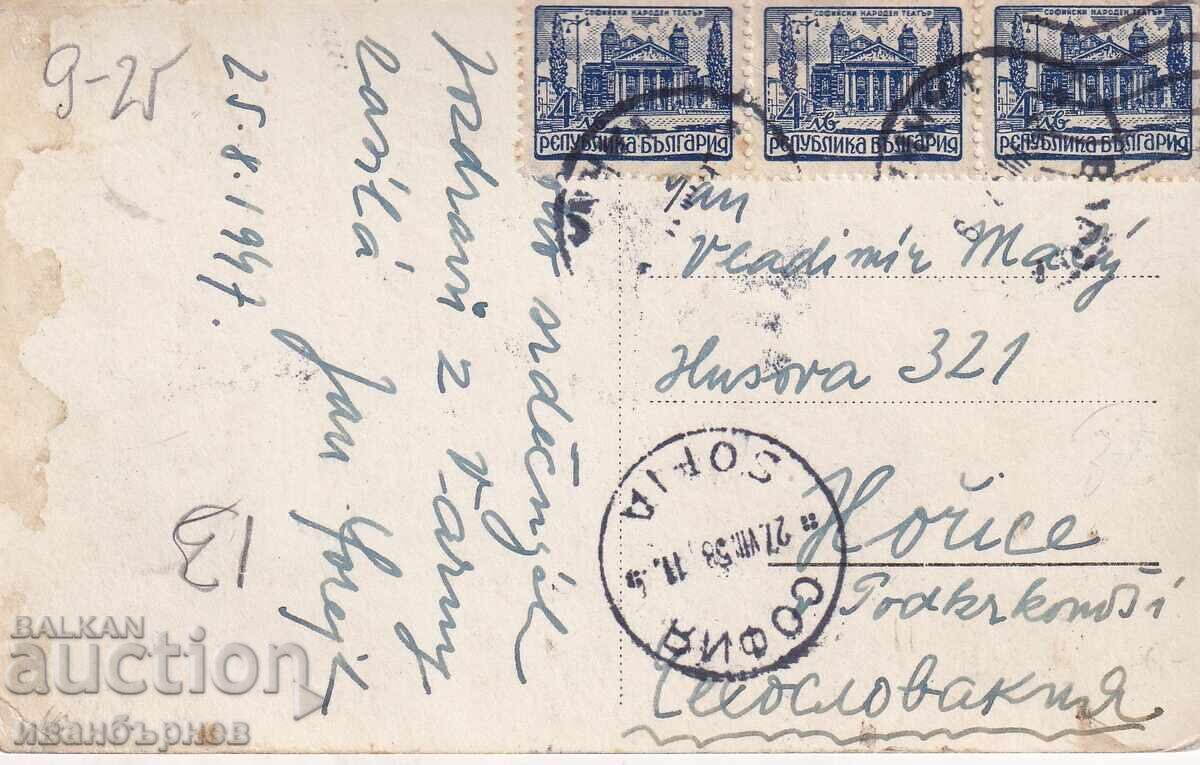 СОФИЙСКИ НАРОДЕН ТЕАТЪР
4 лв
РЕПУБЛИКА БЪЛГАРИЯ
СОФИЙСКИ НАРОДЕН ТЕАТЪР
4 лв
РЕПУБЛИКА БЪЛГАРИЯ
СОФИЙСКИ НАРОДЕН ТЕАТЪР
4 лв
РЕПУБЛИКА БЪЛГАРИЯ
9-25
srdečných
pozdravů z Varny
zasílá
Jan
25.8.1947.
13
Pan
Vladimír Malý
Husova 321
Hořice
v Podkrkonoší
Чехословакия
SOFIA
27.VIII.58.11
СОФИЯ
BALKAN
auction
иванбърнов